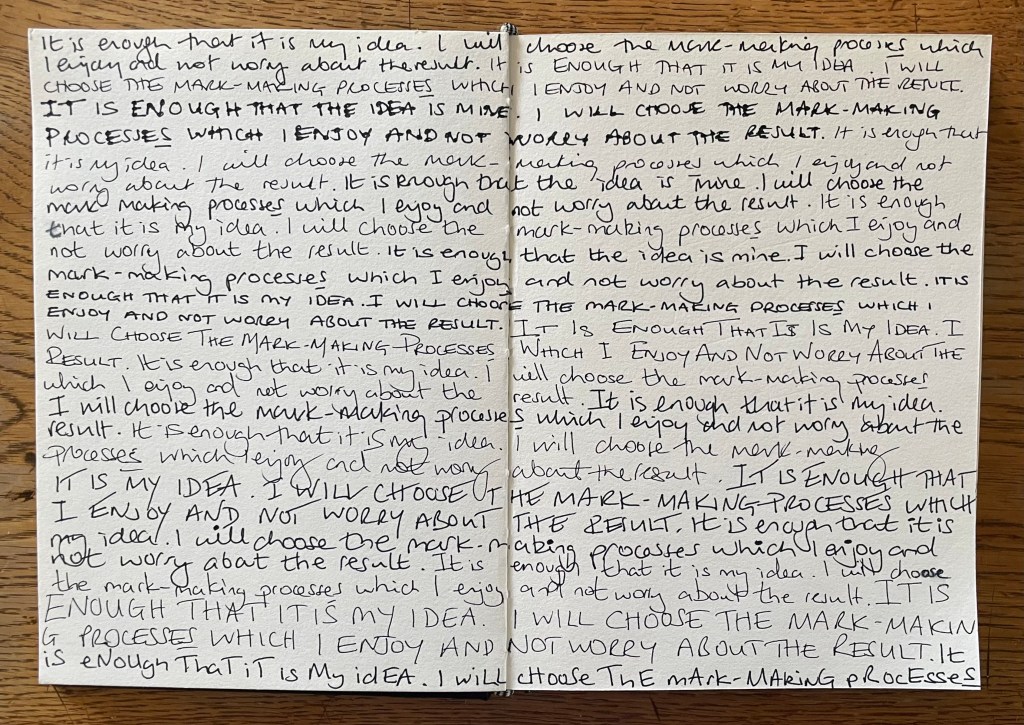 It is enough that it is my idea. I will choose the mark-making processes which
I enjoy and not worry about the result. It is ENOUGH THAT IT IS MY IDEA. I WILL
CHOOSE THE MARK-MAKING PROCESSES WHICH I ENJOY AND NOT WORRY ABOUT THE RESULT.
IT IS ENOUGH THAT THE IDEA IS MINE. I WILL CHOOSE THE MARK-MAKING
PROCESSES WHICH I ENJOY AND NOT WORRY ABOUT THE RESULT. It is enough that
it is my idea. I will choose the mark-making processes which I enjoy and not
worry about the result. It is enough that the idea is mine. I will choose the
mark making processes which I enjoy and not worry about the result. It is enough
that it is my idea. I will choose the mark-making processes which I enjoy and
not worry about the result. It is enough that the idea is mine. I will choose the
mark-making processes which I enjoy and not worry about the result. IT IS
ENOUGH THAT IT IS MY IDEA. I WILL CHOOSE THE MARK-MAKING PROCESSES WHICH I
ENJOY AND NOT WORRY ABOUT THE RESULT. IT IS ENOUGH THAT IS IS MY IDEA. I
WILL CHOOSE THE MARK-MAKING PROCESSES WHICH I ENJOY AND NOT WORRY ABOUT THE
RESULT. It is enough that it is my idea. I will choose the mark-making processes
which I enjoy and not worry about the result. It is enough that it is my idea.
I will choose the mark-making processes which I enjoy and not worry about the
result. It is enough that it is my idea. I will choose the mark-making
processes which I enjoy and not worry about the result. IT IS ENOUGH THAT
IT IS MY IDEA. I WILL CHOOSE THE MARK-MAKING-PROCESSES WHICH
I ENJOY AND NOT WORRY ABOUT THE RESULT. It is enough that it is
my idea. I will choose the mark-making processes which I enjoy and
not worry about the result. It is enough that it is my idea. I will choose
the mark-making processes which I enjoy and not worry about the result. IT IS
ENOUGH THAT IT IS MY IDEA. I WILL CHOOSE THE MARK-MAKIN
G PROCESSES WHICH I ENJOY AND NOT WORRY ABOUT THE RESULT. It
is eNough ThaT iT is My idEA. I wiLL choose The mArk-MAKing pRocEsses